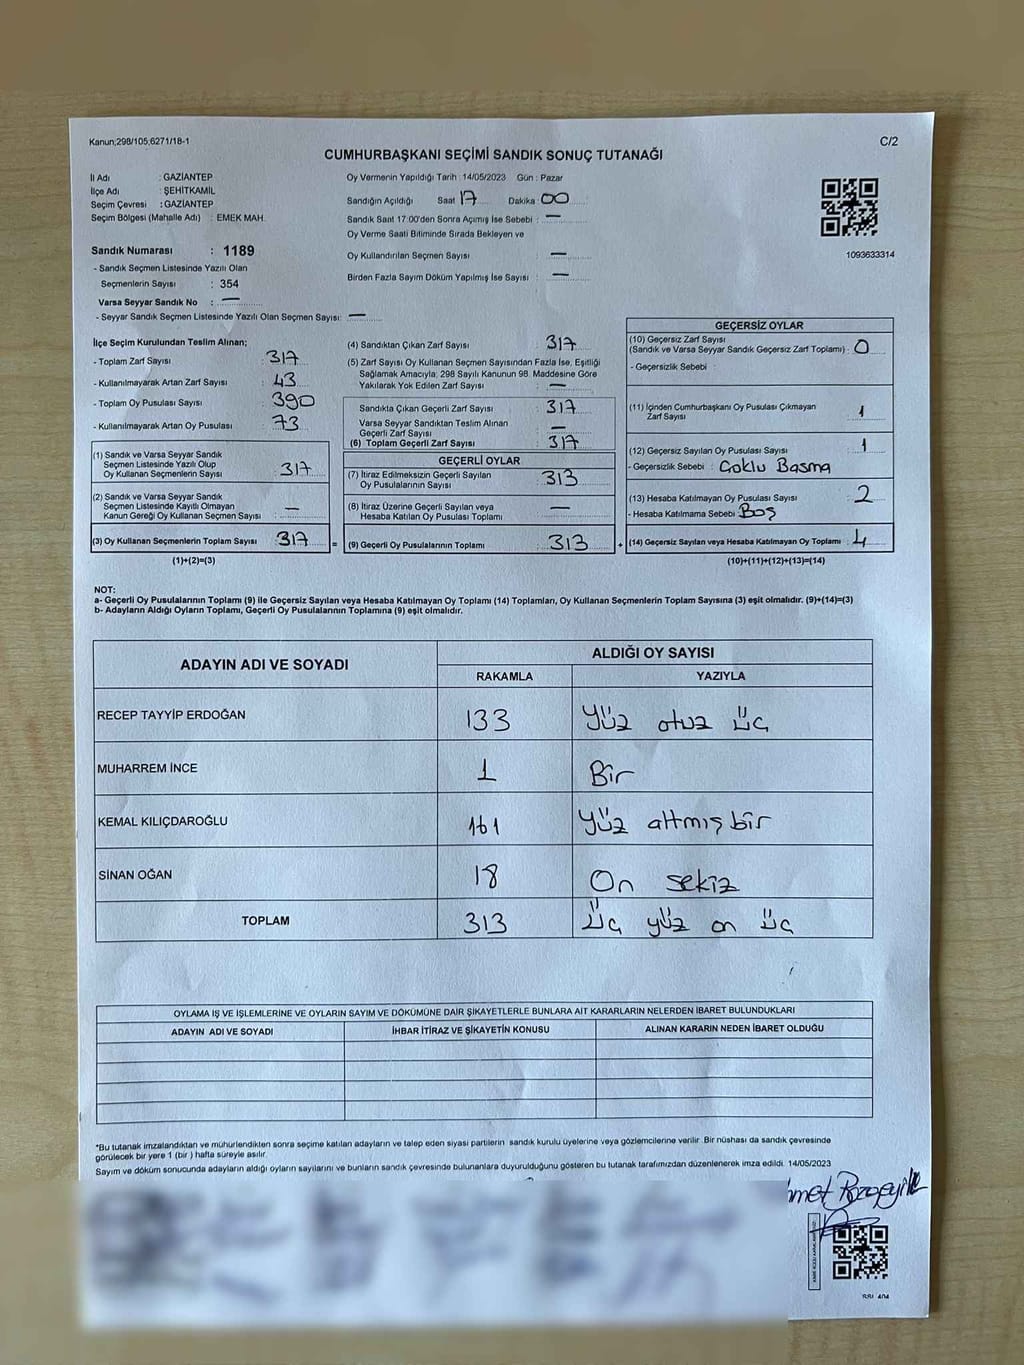 Kanun;298/105,6271/18-1
C/2
CUMHURBAŞKANI SEÇİMİ SANDIK SONUÇ TUTANAĞI
İl Adı : GAZİANTEP
İlçe Adı : ŞEHİTKAMİL
Seçim Çevresi : GAZİANTEP
Seçim Bölgesi (Mahalle Adı) : EMEK MAH.
Sandık Numarası : 1189
- Sandık Seçmen Listesinde Yazılı Olan
Seçmenlerin Sayısı : 354
Varsa Seyyar Sandık No : —
- Seyyar Sandık Seçmen Listesinde Yazılı Olan Seçmen Sayısı: —
Oy Vermenin Yapıldığı Tarih : 14/05/2023 Gün : Pazar
Sandığın Açıldığı Saat 17 Dakika 00
Sandık Saat 17:00'den Sonra Açımış İse Sebebi : —
Oy Verme Saati Bitiminde Sırada Bekleyen ve
Oy Kullandırılan Seçmen Sayısı —
Birden Fazla Sayım Döküm Yapılmış İse Sayısı : —
1093633314
İlçe Seçim Kurulundan Teslim Alınan;
- Toplam Zarf Sayısı : 317
- Kullanılmayarak Artan Zarf Sayısı : 43
- Toplam Oy Pusulası Sayısı : 390
- Kullanılmayarak Artan Oy Pusulası : 73
(1) Sandık ve Varsa Seyyar Sandık
Seçmen Listesinde Yazılı Olup
Oy Kullanan Seçmenlerin Sayısı : 317
(2) Sandık ve Varsa Seyyar Sandık
Seçmen Listesinde Kayıtlı Olmayan
Kanun Gereği Oy Kullanan Seçmen Sayısı : —
(3) Oy Kullanan Seçmenlerin Toplam Sayısı : 317 =
(1)+(2)=(3)
(4) Sandıktan Çıkan Zarf Sayısı 317
(5) Zarf Sayısı Oy Kullanan Seçmen Sayısından Fazla İse, Eşitliği
Sağlamak Amacıyla; 298 Sayılı Kanunun 98. Maddesine Göre
Yakılarak Yok Edilen Zarf Sayısı —
Sandıkta Çıkan Geçerli Zarf Sayısı 317
Varsa Seyyar Sandıktan Teslim Alınan
Geçerli Zarf Sayısı —
(6) Toplam Geçerli Zarf Sayısı 317
GEÇERLİ OYLAR
(7) İtiraz Edilmeksizin Geçerli Sayılan
Oy Pusulalarının Sayısı 313
(8) İtiraz Üzerine Geçerli Sayılan veya
Hesaba Katılan Oy Pusulası Toplamı —
(9) Geçerli Oy Pusulalarının Toplamı 313 +
GEÇERSİZ OYLAR
(10) Geçersiz Zarf Sayısı
(Sandık ve Varsa Seyyar Sandık Geçersiz Zarf Toplamı) : 0
- Geçersizlik Sebebi :
(11) İçinden Cumhurbaşkanı Oy Pusulası Çıkmayan
Zarf Sayısı 1
(12) Geçersiz Sayılan Oy Pusulası Sayısı 1
- Geçersizlik Sebebi : Çoklu Basma
(13) Hesaba Katılmayan Oy Pusulası Sayısı 2
- Hesaba Katılmama Sebebi : Boş
(14) Geçersiz Sayılan veya Hesaba Katılmayan Oy Toplamı : 4
(10)+(11)+(12)+(13)=(14)
NOT:
a- Geçerli Oy Pusulalarının Toplamı (9) ile Geçersiz Sayılan veya Hesaba Katılmayan Oy Toplamı (14) Toplamları, Oy Kullanan Seçmenlerin Toplam Sayısına (3) eşit olmalıdır. (9)+(14)=(3)
b- Adayların Aldığı Oyların Toplamı, Geçerli Oy Pusulalarının Toplamına (9) eşit olmalıdır.
ADAYIN ADI VE SOYADI
ALDIĞI OY SAYISI
RAKAMLA YAZIYLA
RECEP TAYYİP ERDOĞAN 133 Yüz otuz üç
MUHARREM İNCE 1 Bir
KEMAL KILIÇDAROĞLU 161 Yüz altmış bir
SİNAN OĞAN 18 On sekiz
TOPLAM 313 Üç yüz on üç
OYLAMA İŞ VE İŞLEMLERİNE VE OYLARIN SAYIM VE DÖKÜMÜNE DAİR ŞİKAYETLERLE BUNLARA AİT KARARLARIN NELERDEN İBARET BULUNDUKLARI
ADAYIN ADI VE SOYADI İHBAR İTİRAZ VE ŞİKAYETİN KONUSU ALINAN KARARIN NEDEN İBARET OLDUĞU
*Bu tutanak imzalandıktan ve mühürlendikten sonra seçime katılan adayların ve talep eden siyasi partilerin sandık kurulu üyelerine veya gözlemcilerine verilir. Bir nüshası da sandık çevresinde
görülecek bir yere 1 (bir ) hafta süreyle asılır.
Sayım ve döküm sonucunda adayların aldığı oyların sayılarını ve bunların sandık çevresinde bulunanlara duyurulduğunu gösteren bu tutanak tarafımızdan düzenlenerek imza edildi. 14/05/2023